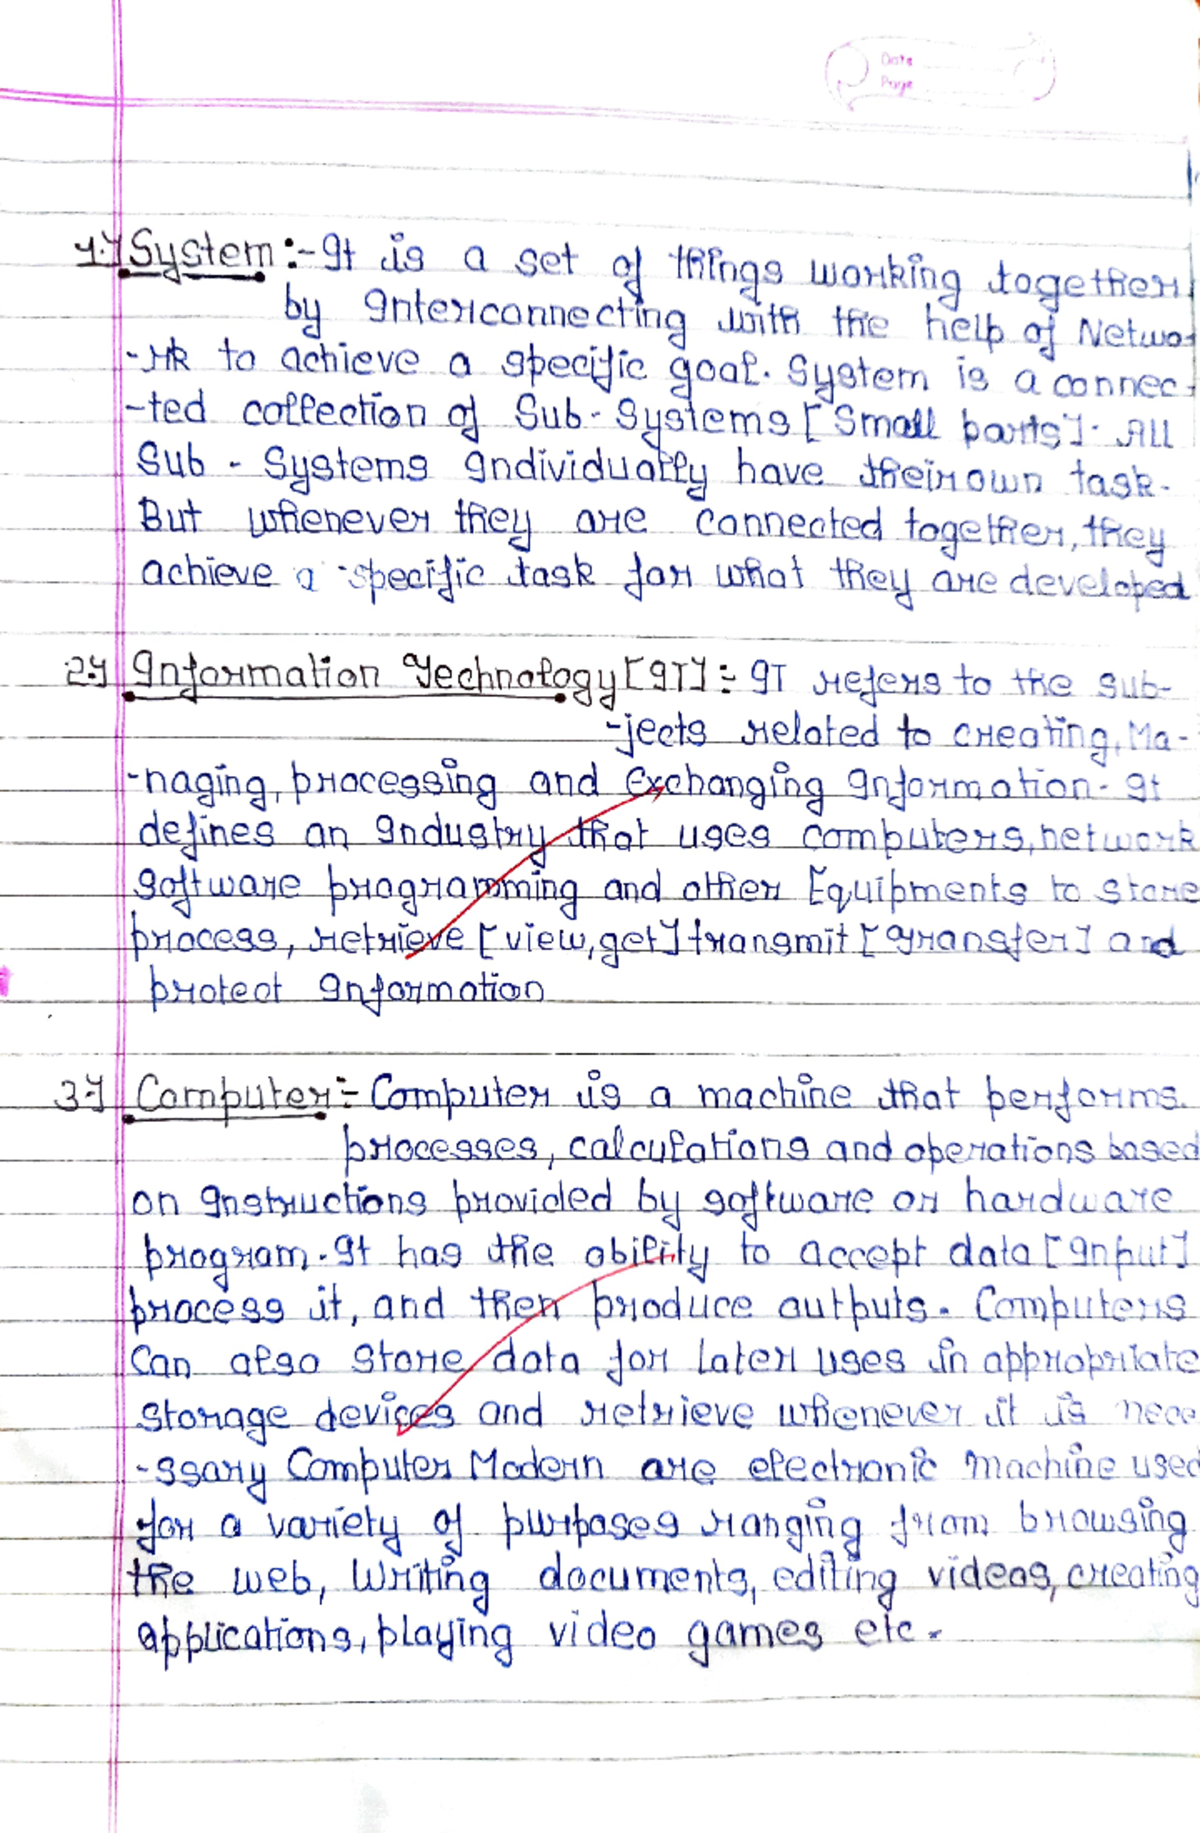 Date
Page
1.) System :- It is a set of things working together
by Interconnecting with the help of Netwo
-rk to achieve a specific goal. System is a connec-
-ted collection of Sub-Systems [Small parts]. All
Sub-Systems Individually have their own task.
But whenever they are connected together, they
achieve a specific task for what they are developed
2.) Information Technology [IT] :- IT refers to the sub-
-jects related to creating, Ma-
-naging, processing and Exchanging Information. It
defines an Industry that uses computers, network
software programming and other Equipments to store
process, retrieve [view, get] transmit [Transfer] and
protect Information
3.) Computer :- Computer is a machine that performs
processes, calculations and operations based
on Instructions provided by software or hardware
program. It has the ability to accept data [Input]
process it, and then produce outputs. Computers
Can also store data for later uses in appropriate
storage devices and retrieve whenever it is nece
-ssary Computer Modern are electronic machine used
for a variety of purposes ranging from browsing
the web, Writing documents, editing videos, creating
applications, playing video games etc.